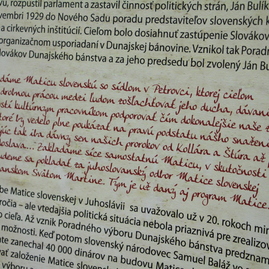 vu, rozpustil parlament a zastavil činnosť politických strán, Ján Bulík
vembri 1929 do Nového Sadu poradu predstaviteľov slovenských k
a cirkevných inštitúcií. Cieľom bolo dosiahnuť zastúpenie Slovákov
organizačnom usporiadaní v Dunajskej bánovine. Vznikol tak Porad
lovákov Dunajského bánovstva a za jeho predsedu bol zvolený Ján Bu
dáme Maticu slovenskú so sídlom v Petrovci, ktorej cieľom
drobnou prácou medzi ľudom zošľachťovať jeho ducha, dávan
osti kultúrnym pracovníkom podporovať čím dokonalejšie naše
toré by vedelo plne poukázať na pravú podstatu nášho snažen
júc tak dľa dávnej sen našich prorokov od Kollára a Štúra až
oslava... Zakladáme síce samostatnú Maticu, v skutočnosti
udeme sa pokladať za juhoslovanský odbor Matice slovenskej
anskom Svätom Martine. Tým je už daný aj program Matice.
be Matice slovenskej v Juhoslávii sa uvažovalo už v 20. rokoch min
ročia – ale vtedajšia politická situácia nebola priaznivá pre zrealizov
o cieľa. Až vznik Poradného výboru Dunajského bánovstva predznam
možnosti. Keď potom slovenský národovec Samuel Baláž vo
te zanechal 40 000 dinárov na budovu Matice
výboru